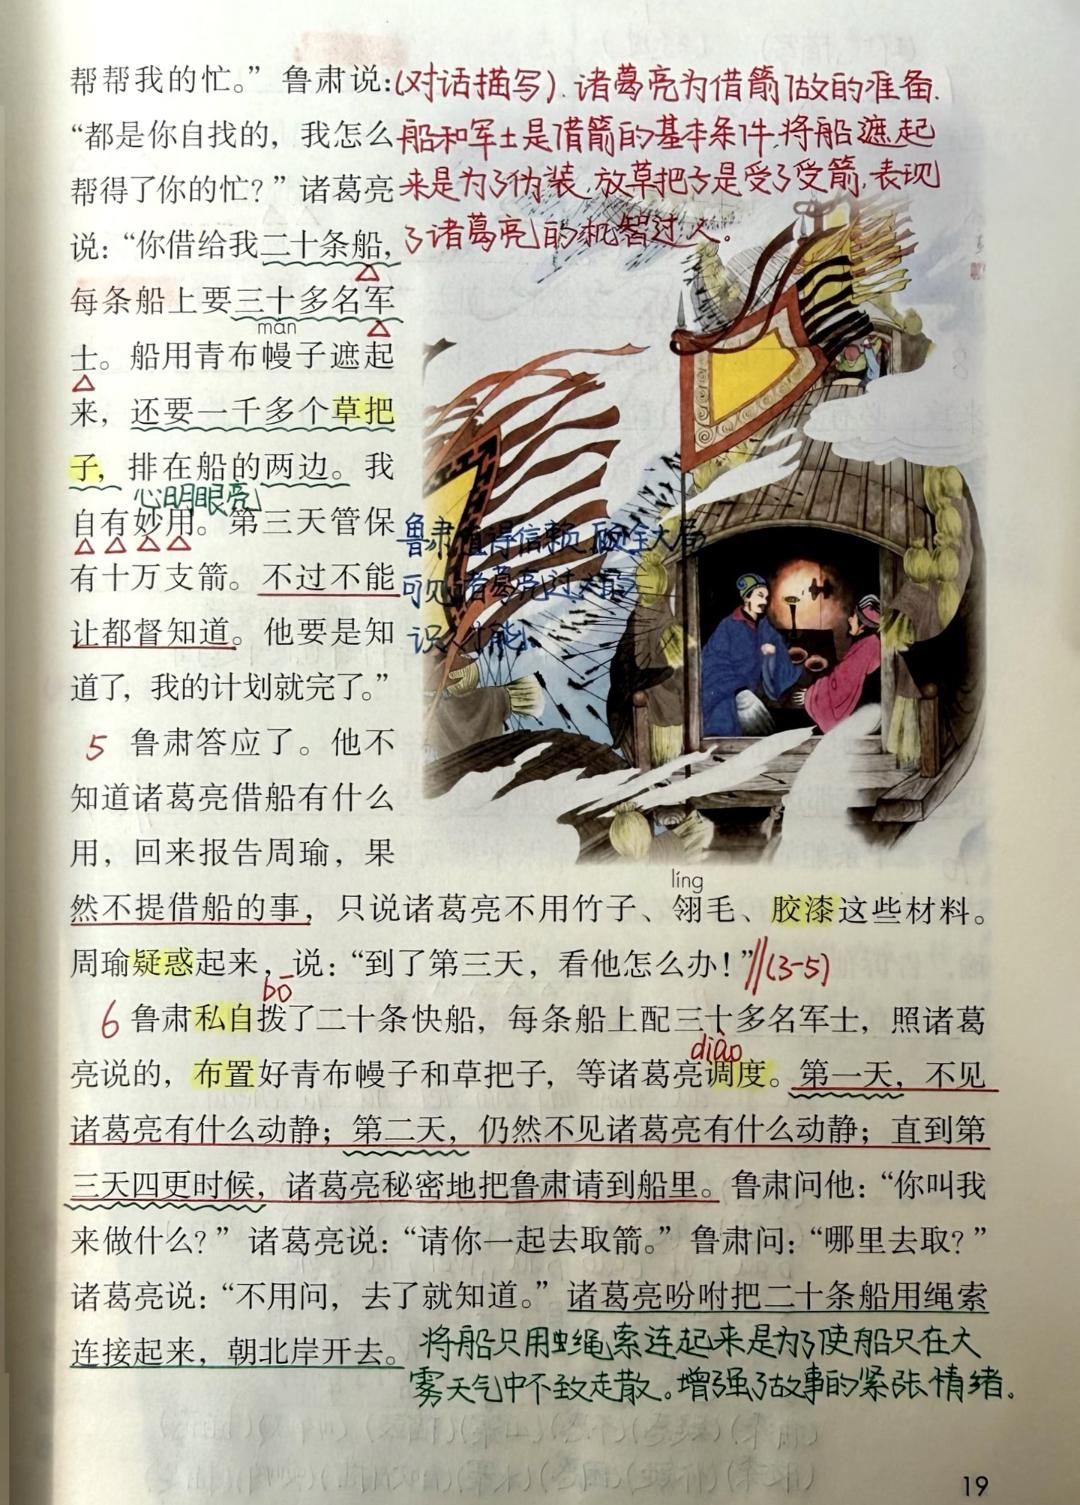 帮帮我的忙。”鲁肃说：
(对话描写).诸葛亮为借箭做的准备.
“都是你自找的，我怎么
船和军士是借箭的基本条件,将船遮起
帮得了你的忙？”诸葛亮
来是为了伪装,放草把子是受了受箭,表现
说：“你借给我二十条船，
了诸葛亮的机智过人。
每条船上要三十多名军
màn
士。船用青布幔子遮起
来，还要一千多个草把
子，排在船的两边。我
心明眼亮
自有妙用。第三天管保
鲁肃值得信赖,顾全大局
有十万支箭。不过不能
可见诸葛亮过人
让都督知道。他要是知
识人才能
道了，我的计划就完了。”
5 鲁肃答应了。他不
知道诸葛亮借船有什么
用，回来报告周瑜，果
líng
然不提借船的事，只说诸葛亮不用竹子、翎毛、胶漆这些材料。
周瑜疑惑起来，说：“到了第三天，看他怎么办！”//(3-5)
bō
6 鲁肃私自拨了二十条快船，每条船上配三十多名军士，照诸葛
diào
亮说的，布置好青布幔子和草把子，等诸葛亮调度。第一天，不见
诸葛亮有什么动静；第二天，仍然不见诸葛亮有什么动静；直到第
三天四更时候，诸葛亮秘密地把鲁肃请到船里。鲁肃问他：“你叫我
来做什么？”诸葛亮说：“请你一起去取箭。”鲁肃问：“哪里去取？”
诸葛亮说：“不用问，去了就知道。”诸葛亮吩咐把二十条船用绳索
连接起来，朝北岸开去。
将船只用绳索连起来是为了使船只在大
雾天气中不致走散。增强了故事的紧张情绪.
19